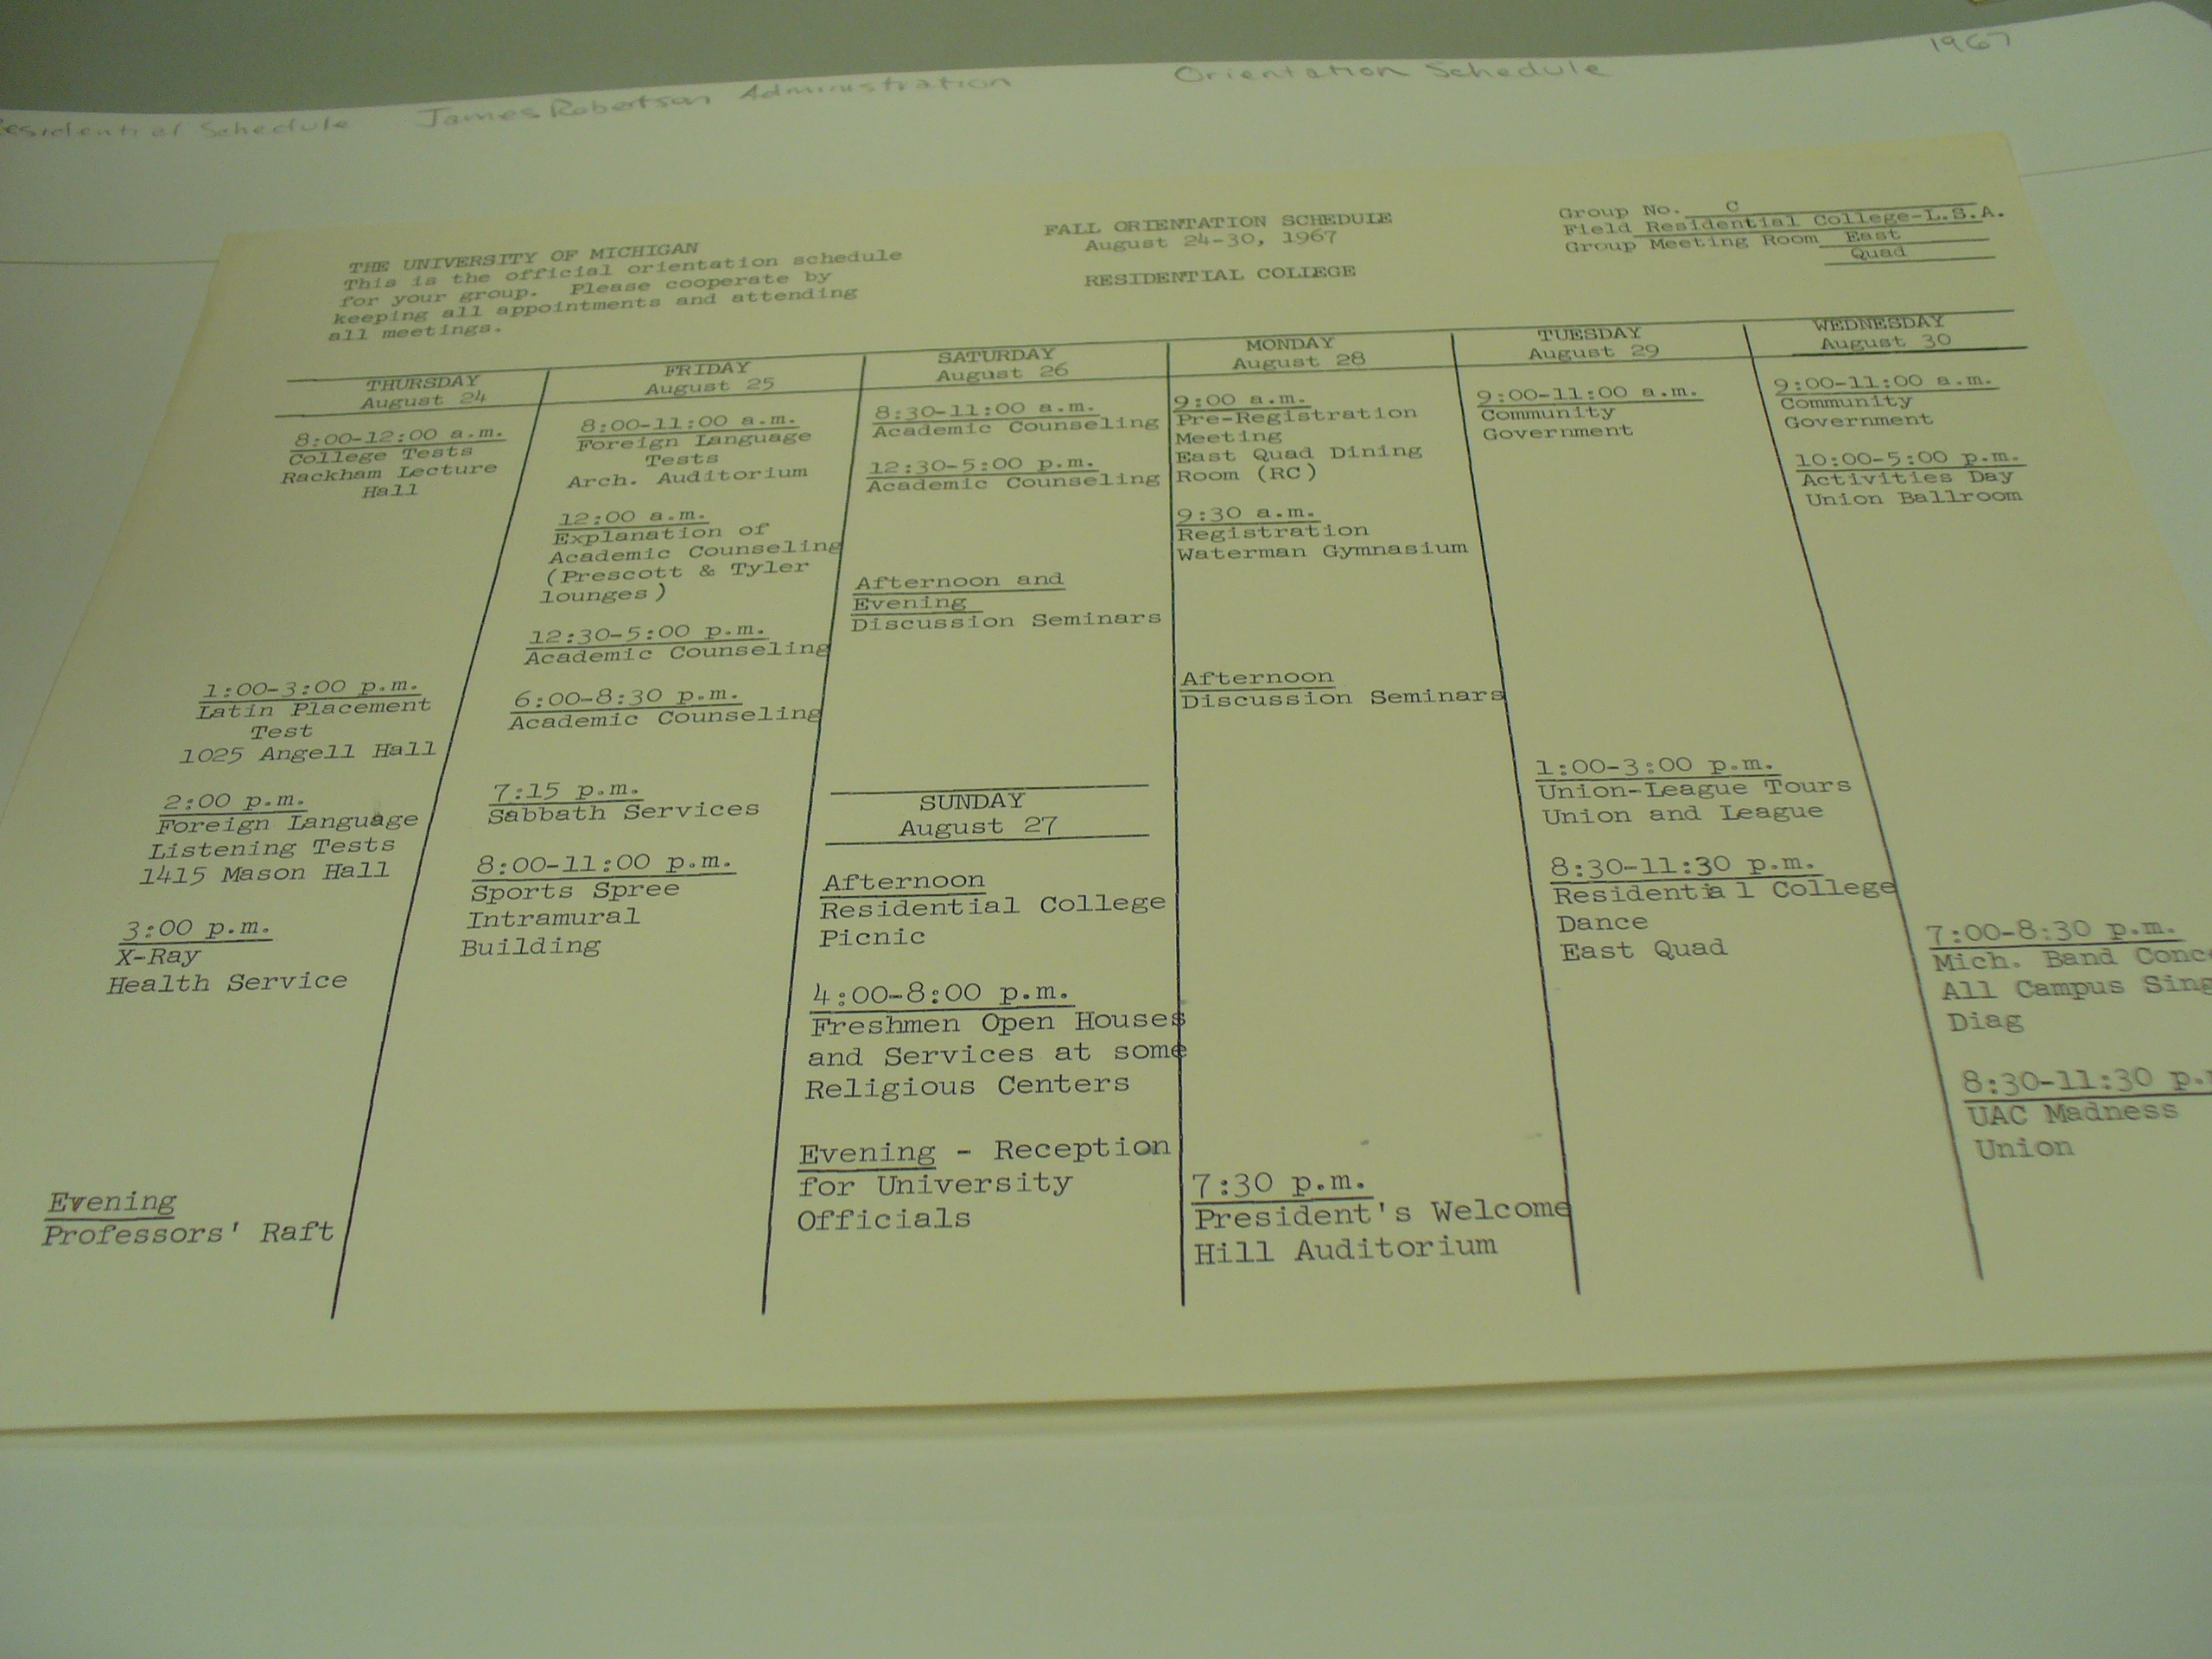 Schedule James Robertson Administration Orientation Schedule 1967
THE UNIVERSITY OF MICHIGAN
This is the official orientation schedule
for your group. Please cooperate by
keeping all appointments and attending
all meetings.
FALL ORIENTATION SCHEDULE
August 24-30, 1967
RESIDENTIAL COLLEGE
Group No. C
Field Residential College-L.S.A.
Group Meeting Room East
Quad
THURSDAY
August 24
8:00-12:00 a.m.
College Tests
Rackham Lecture
Hall
1:00-3:00 p.m.
Latin Placement
Test
1025 Angell Hall
2:00 p.m.
Foreign Language
Listening Tests
1415 Mason Hall
3:00 p.m.
X-Ray
Health Service
Evening
Professors' Raft
FRIDAY
August 25
8:00-11:00 a.m.
Foreign Language
Tests
Arch. Auditorium
12:00 a.m.
Explanation of
Academic Counseling
(Prescott & Tyler
lounges)
12:30-5:00 p.m.
Academic Counseling
6:00-8:30 p.m.
Academic Counseling
7:15 p.m.
Sabbath Services
8:00-11:00 p.m.
Sports Spree
Intramural
Building
SATURDAY
August 26
8:30-11:00 a.m.
Academic Counseling
12:30-5:00 p.m.
Academic Counseling
Afternoon and
Evening
Discussion Seminars
SUNDAY
August 27
Afternoon
Residential College
Picnic
4:00-8:00 p.m.
Freshmen Open Houses
and Services at some
Religious Centers
Evening - Reception
for University
Officials
MONDAY
August 28
9:00 a.m.
Pre-Registration
Meeting
East Quad Dining
Room (RC)
9:30 a.m.
Registration
Waterman Gymnasium
Afternoon
Discussion Seminars
7:30 p.m.
President's Welcome
Hill Auditorium
TUESDAY
August 29
9:00-11:00 a.m.
Community
Government
1:00-3:00 p.m.
Union-League Tours
Union and League
8:30-11:30 p.m.
Residential College
Dance
East Quad
WEDNESDAY
August 30
9:00-11:00 a.m.
Community
Government
10:00-5:00 p.m.
Activities Day
Union Ballroom
7:00-8:30 p.m.
Mich. Band
All Campus Sing
Diag
8:30-11:30
UAC Madness
Union